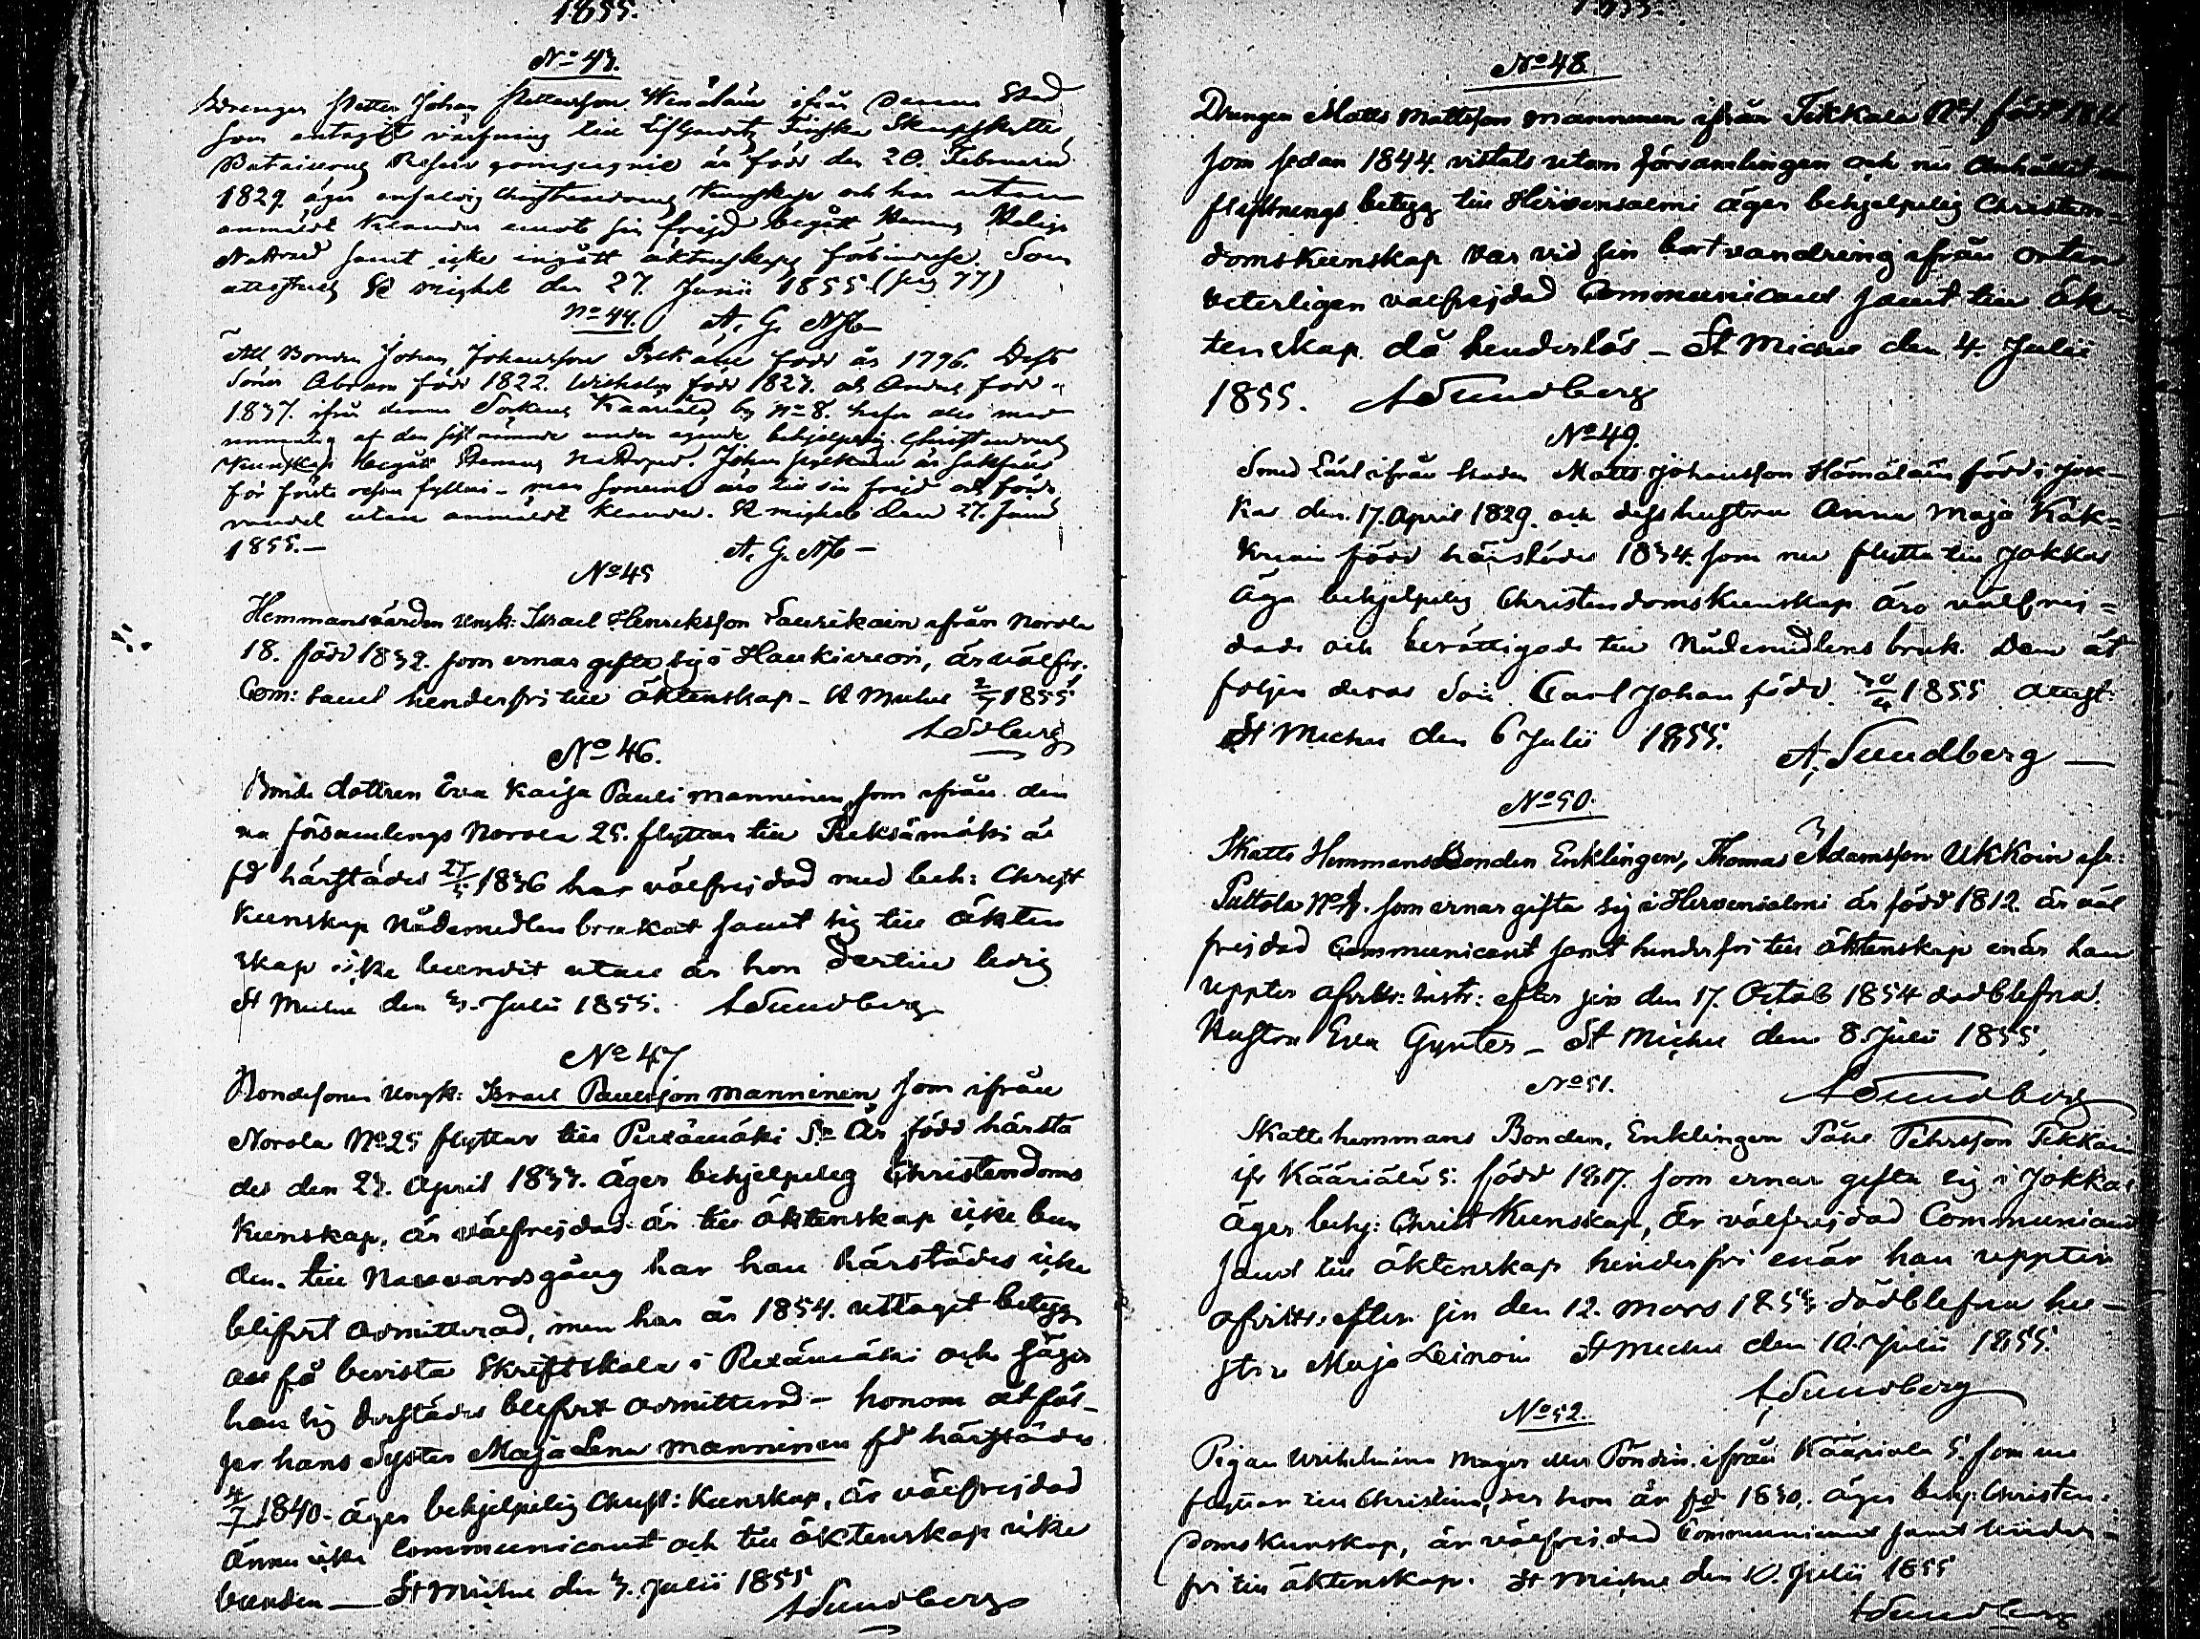 1855.
No 43.
Drengen Petter Johan Pettersson Wenäläin ifrån denna Stad
som antagit värfning till Lifgardets Finska Skarpskytte
Bataillons Reserv Compagnie är född den 20. Februarii
1829. äger enfaldig Christendoms Kunskap och har utan
anmäldt Klander emot sin frejd begått Herrens Heliga
Nattvard samt icke ingått äktenskaps förbindelse. Som
attesteras St Michel den 27. Junii 1855 (pag 77)
No 44. A. G.
Att Bonden Johan Johansson född år 1796. Dess
Söner Abram född 1822. Wilhelm född 1827. och Anders född
1837. ifrån denna Sockens Kääriälä by No 8. hafva alla med
af den sistnämnde under ägande behjelpelig Christendoms
Kunskap begått Herrens Nattvard. Johan är sakfäld
för första resan fylleri - men sönerna äro till sin frejd och
vandel utan anmäldt klander. St Michel den 27. Junii
1855. — A. G.
No 45
Hemmansvärden Ungk: Israel Henriksson Laurikain ifrån Norola
18. född 1832. som ernar gifta sig i Haukivuori, är välfr.
Com: samt hinderfri till äktenskap - St Michel 2/7 1855
ASdberg
No 46.
Bonde dottren Eva Kaisa Pauli Manninen, som ifrån den
na församlings Norola 25. flyttar till Pieksämäki är
fd härstädes 27/5 1836 har välfrejdad med beh: Christ
Kunskap Nådemedlen brukat samt sig till äkten
skap icke bundit utan är hon dertill ledig
St Michel den 3. Julii 1855. ASundberg
No 47
Bondesonen Ungk: Israel Paulsson Manninen, som ifrån
Norola No 25 flyttar till Piexämäki Sn är född härstä
des den 23. April 1833. äger behjelpeleg Christendoms
Kunskap, är välfrejdad är till äktenskap icke bun
den. till Nattvardsgång har han härstädes icke
blifvit admitterad, men har år 1854. uttagit betygg
att få bevista Skriftskola i Pexämäki och säger
han sig derstädes blifvit admitterad - honom åtföl-
jer hans Syster Maja Lena Manninen fd härstädes
4/7 1840. äger behjelpelig Christ: Kunskap, är välfrejdad
ännu icke Communicant och till äktenskap icke
bunden — St Michel den 3. Julii 1855
ASundberg
1855.
No 48.
Drängen Matts Mattsson Manninen ifrån Tikkala No 1. född
som sedan 1844. vistats utom församlingen och nu anhållit om
flyttnings betygg till Hirvensalmi äger behjelpelig Christen=
domskunskap var vid sin bortvandring ifrån orten
veterligen välfrejdad Communicant samt till Äk=
tenskap då hinderlös - St Michel den 4. Julii
1855. ASundberg
No 49.
Smed Lärl ifrån Staden Matts Johansson Hämäläin född i Jok-
kas den 17. April 1829. och dess hustru Anna Maja Käk=
kinen född härstädes 1834. som nu flytta till Jokkas
Äga behjelpelig Christendomskunskap äro välfrej=
dade och berättigade till Nådemedlens bruk. Dem åt
följer deras Son Carl Johan född 30/4 1855 attest:
St Michel den 6 Julii 1855. A. Sundberg —
No 50.
Skatte HemmansBonden Enklingen, Thomas Adamsson Ukkoin ifr:
Pattola No 1. som ernar gifta sig i Hirvensalmi är född 1812. är väl
frejdad Communicant samt hinderfri till äktenskap enär han
upptér afvittr: instr: efter sin den 17. Octob 1854 dödblefna
Hustru Eva Gynter - St Michel den 8. Julii 1855,
ASundberg
No 51.
Skattehemmans Bonden, Enklingen Påhl Pehrsson Tikkain
ifr Kääriälä 5. född 1817. som ernar gifta sig i Jokkas
äger behj: Christ Kunskap, är välfrejdad Communicant
samt till äktenskap hinderfri enär han uppter
afvittr: efter sin den 12. Mars 1855 dödblefna hu-
stru Maja Leinoin St Michel den 10. Julii 1855.
ASundberg
No 52.
Pigan Wilhelmina Mager eller Pöndin ifrån Kääriälä 5 som nu
flyttar till Christina, der hon är fd 1830, äger behj. Christen=
doms kunskap, är välfrejdad Communicant samt hinder=
fri till äktenskap. St Michel den 10. Julii 1855
ASundberg